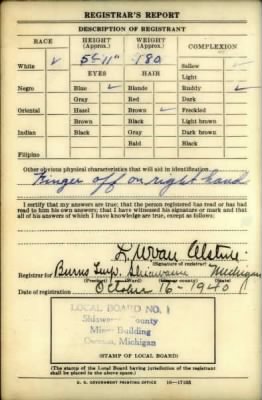 REGISTRAR'S REPORT
DESCRIPTION OF REGISTRANT
RACE HEIGHT (Approx.) WEIGHT (Approx.) COMPLEXION
White ✓ 5'-11" 180 Sallow ✓
EYES HAIR Light
Negro Blue ✓ Blonde Ruddy ✓
Gray Red Dark
Oriental Hazel Brown ✓ Freckled
Brown Black Light brown
Indian Black Gray Dark brown
Bald Black
Filipino
Other obvious physical characteristics that will aid in identification
Finger off on right hand
I certify that my answers are true; that the person registered has read or has had
read to him his own answers; that I have witnessed his signature or mark and that
all of his answers of which I have knowledge are true, except as follows:
(Signature of registrar)
Registrar for Burns Twp. Shiawassee Michigan
(Precinct) (Ward) (City or county) (State)
Date of registration October 16-1940
LOCAL BOARD NO. 1
Shiawassee County
Building
Owosso, Michigan
(STAMP OF LOCAL BOARD)
(The stamp of the Local Board having jurisdiction of the registrant
shall be placed in the above space.)
U. S. GOVERNMENT PRINTING OFFICE 16—17105